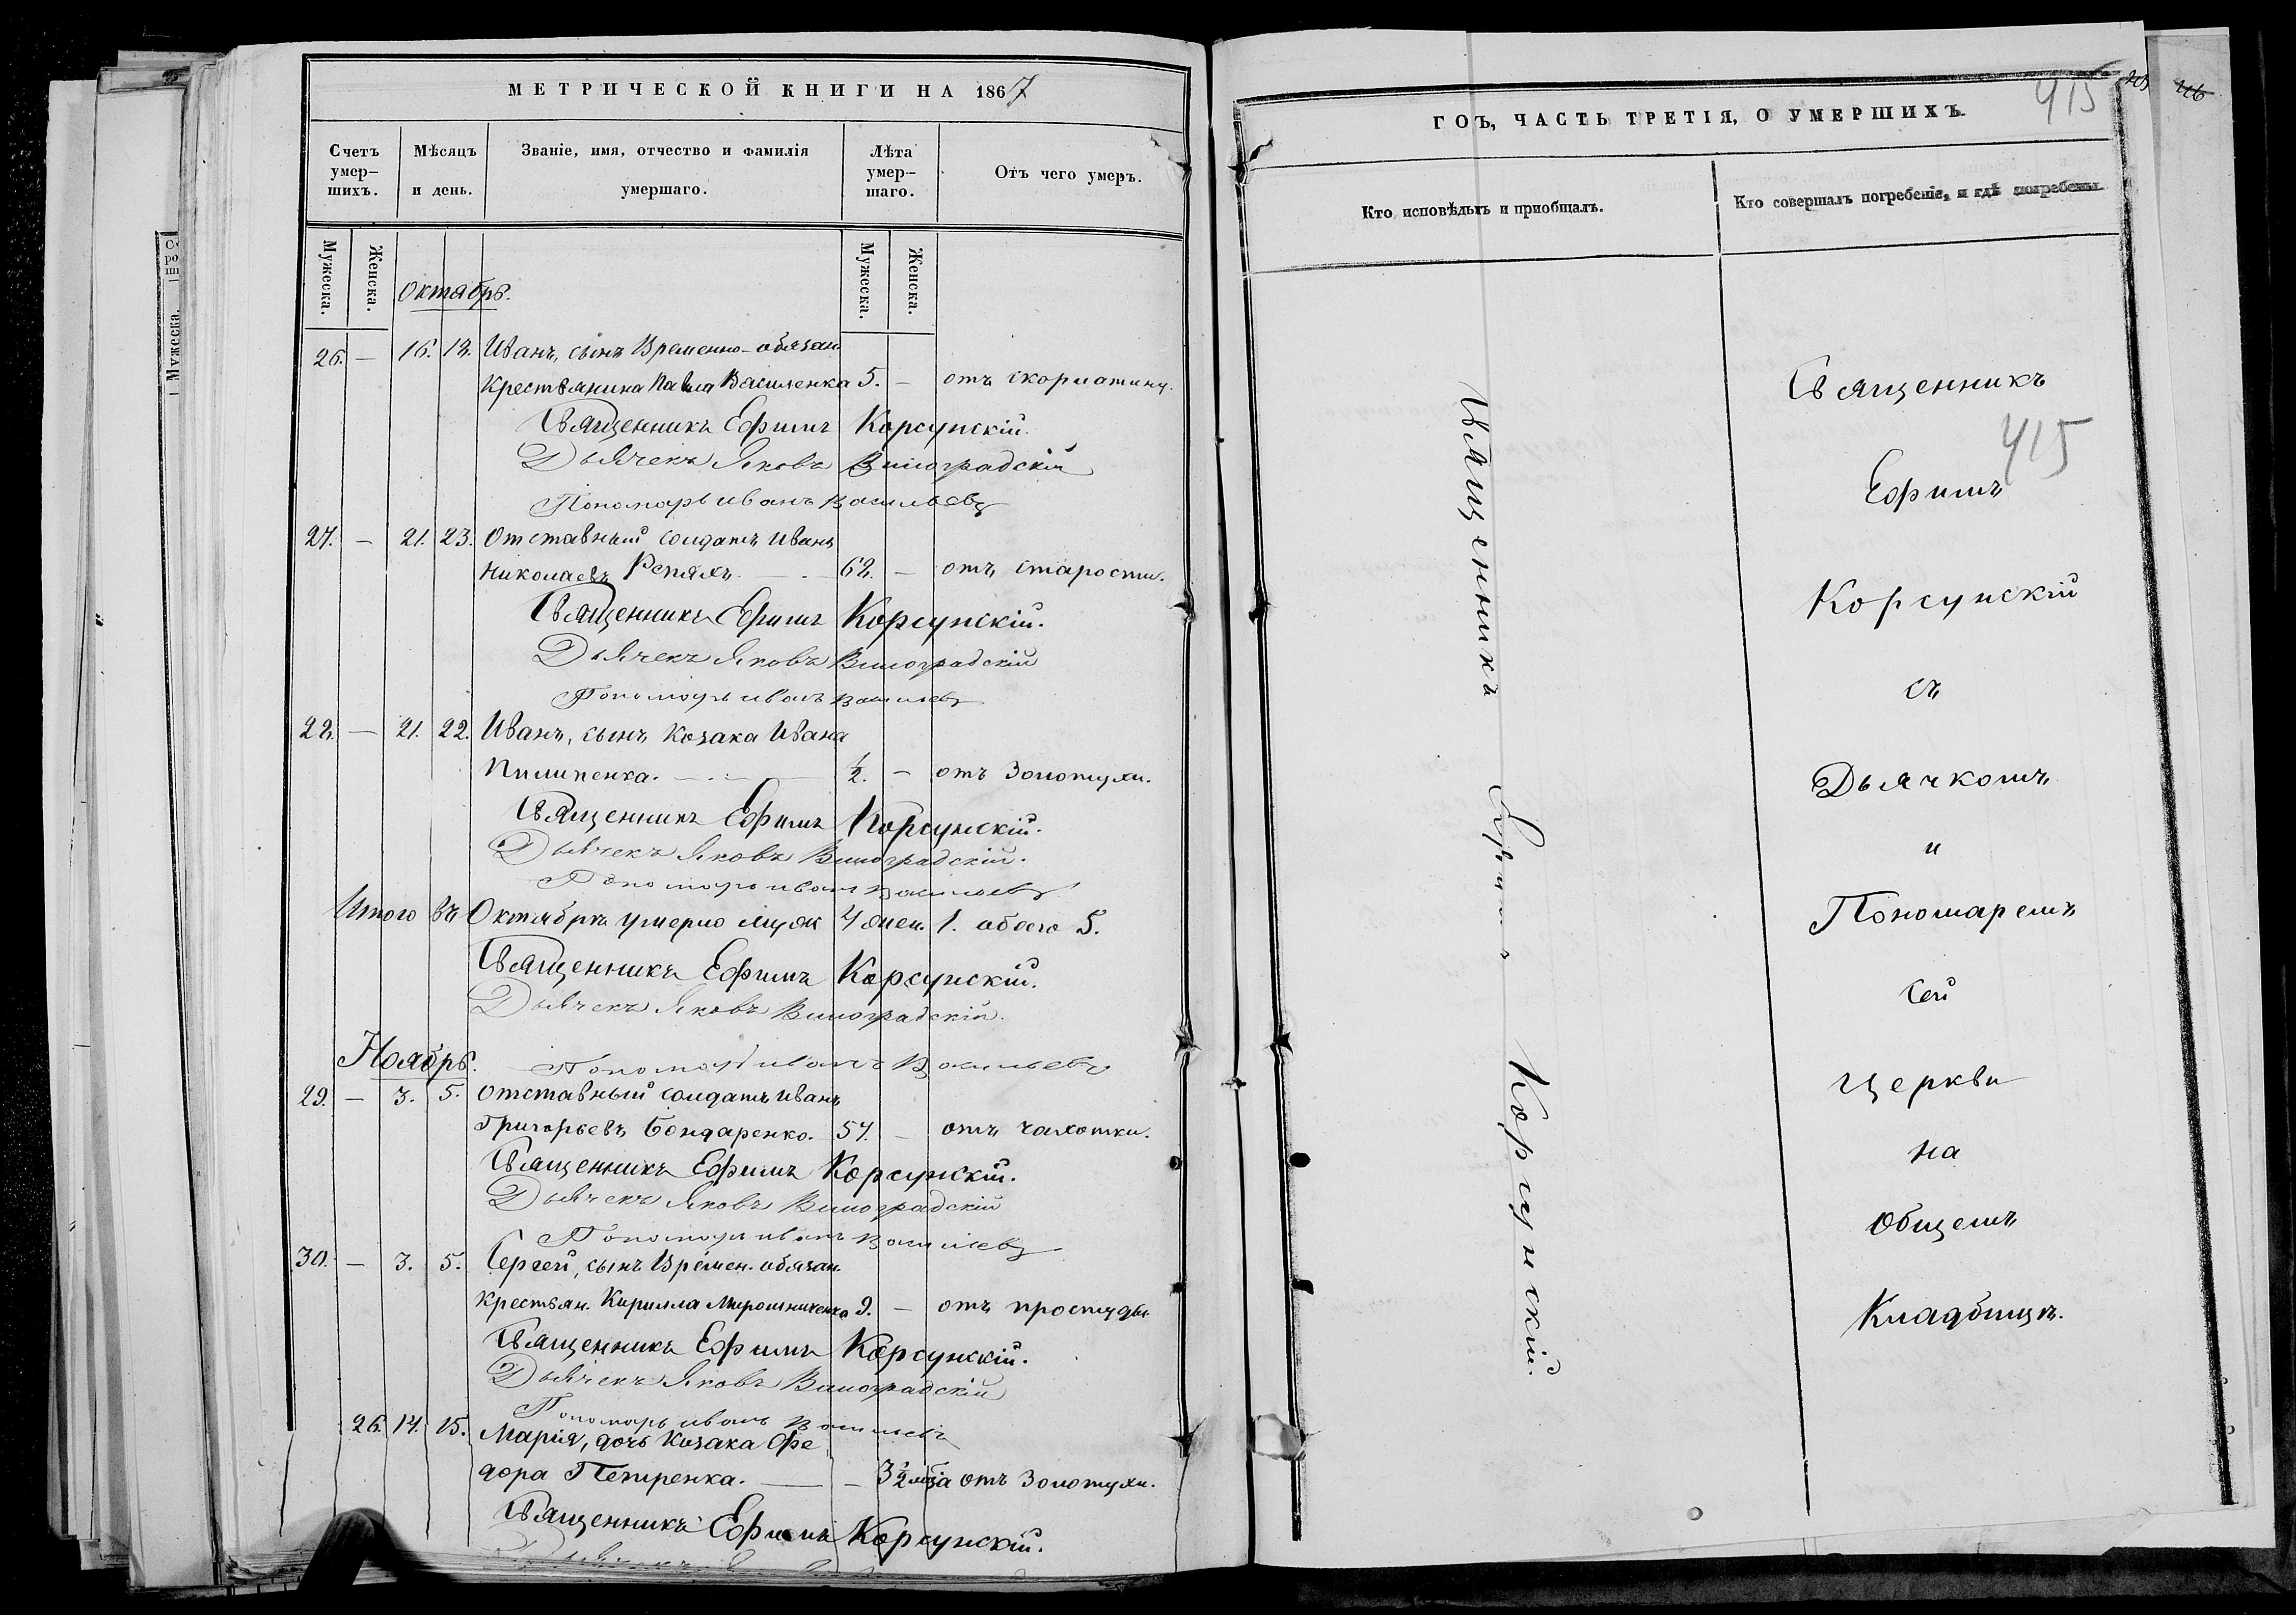 МЕТРИЧЕСКОЙ КНИГИ НА 1867
Счетъ умер-шихъ.
Мѣсяцъ и день.
Званіе, имя, отчество и фамилія умершаго.
Лѣта умер-шаго.
Отъ чего умеръ.
Мужеска. Женска. Мужеска. Женска.
Октябрь.
26. — 16. 18. Иванъ, сынъ Временно-обязан
крестьянина Павла Василенка 5. — отъ скорлатины.
Священникъ Ефимъ Корсунскій.
Дьячекъ Яковъ Виноградскій
Пономарь Иванъ Васильевъ
27. — 21. 23. Отставный солдатъ Иванъ
Николаевъ Репяхъ — 62. — отъ старости.
Священникъ Ефимъ Корсунскій.
Дьячекъ Яковъ Виноградскій
Пономарь Иванъ Васильевъ
28. — 21. 22. Иванъ, сынъ Козака Ивана
Пилипенка. — 1/2. — отъ Золотухи.
Священникъ Ефимъ Корсунскій.
Дьячекъ Яковъ Виноградскій.
Пономарь Иванъ Васильевъ
Итого въ Октябрѣ умерло муж 4 жен. 1. обоего 5.
Священникъ Ефимъ Корсунскій.
Дьячекъ Яковъ Виноградскій.
Пономарь Иванъ Васильевъ
Ноябрь.
29. — 3. 5. Отставный солдатъ Иванъ
Григорьевъ Бондаренко. 57. — отъ чахотки.
Священникъ Ефимъ Корсунскій.
Дьячекъ Яковъ Виноградскій
Пономарь Иванъ Васильевъ
30. — 3. 5. Сергей, сынъ Времен. обязан.
крестьян. Кирилла Мирошниченка 9. — отъ простуды
Священникъ Ефимъ Корсунскій.
Дьячекъ Яковъ Виноградскій
Пономарь Иванъ Васильевъ
26. 14. 15. Марія, дочь Козака Фе
дора Петренка. — — 3 1/2 отъ Золотухи.
Священникъ Ефимъ Корсунскій.
ГОЪ, ЧАСТЬ ТРЕТІЯ, О УМЕРШИХЪ.
415
Кто исповѣдывъ и приобщалъ.
Кто совершалъ погребеніе, и гдѣ погребены.
Священникъ Ефимъ Корсунскій.
Священникъ
415
Ефимъ
Корсунскій
съ
Дьячкомъ
и
Пономаремъ
сей
церкви
на
общемъ
Кладбищѣ.